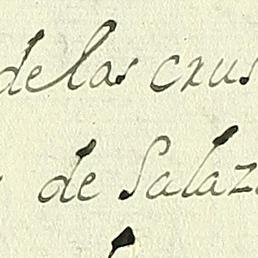 de las crus
de Salaz